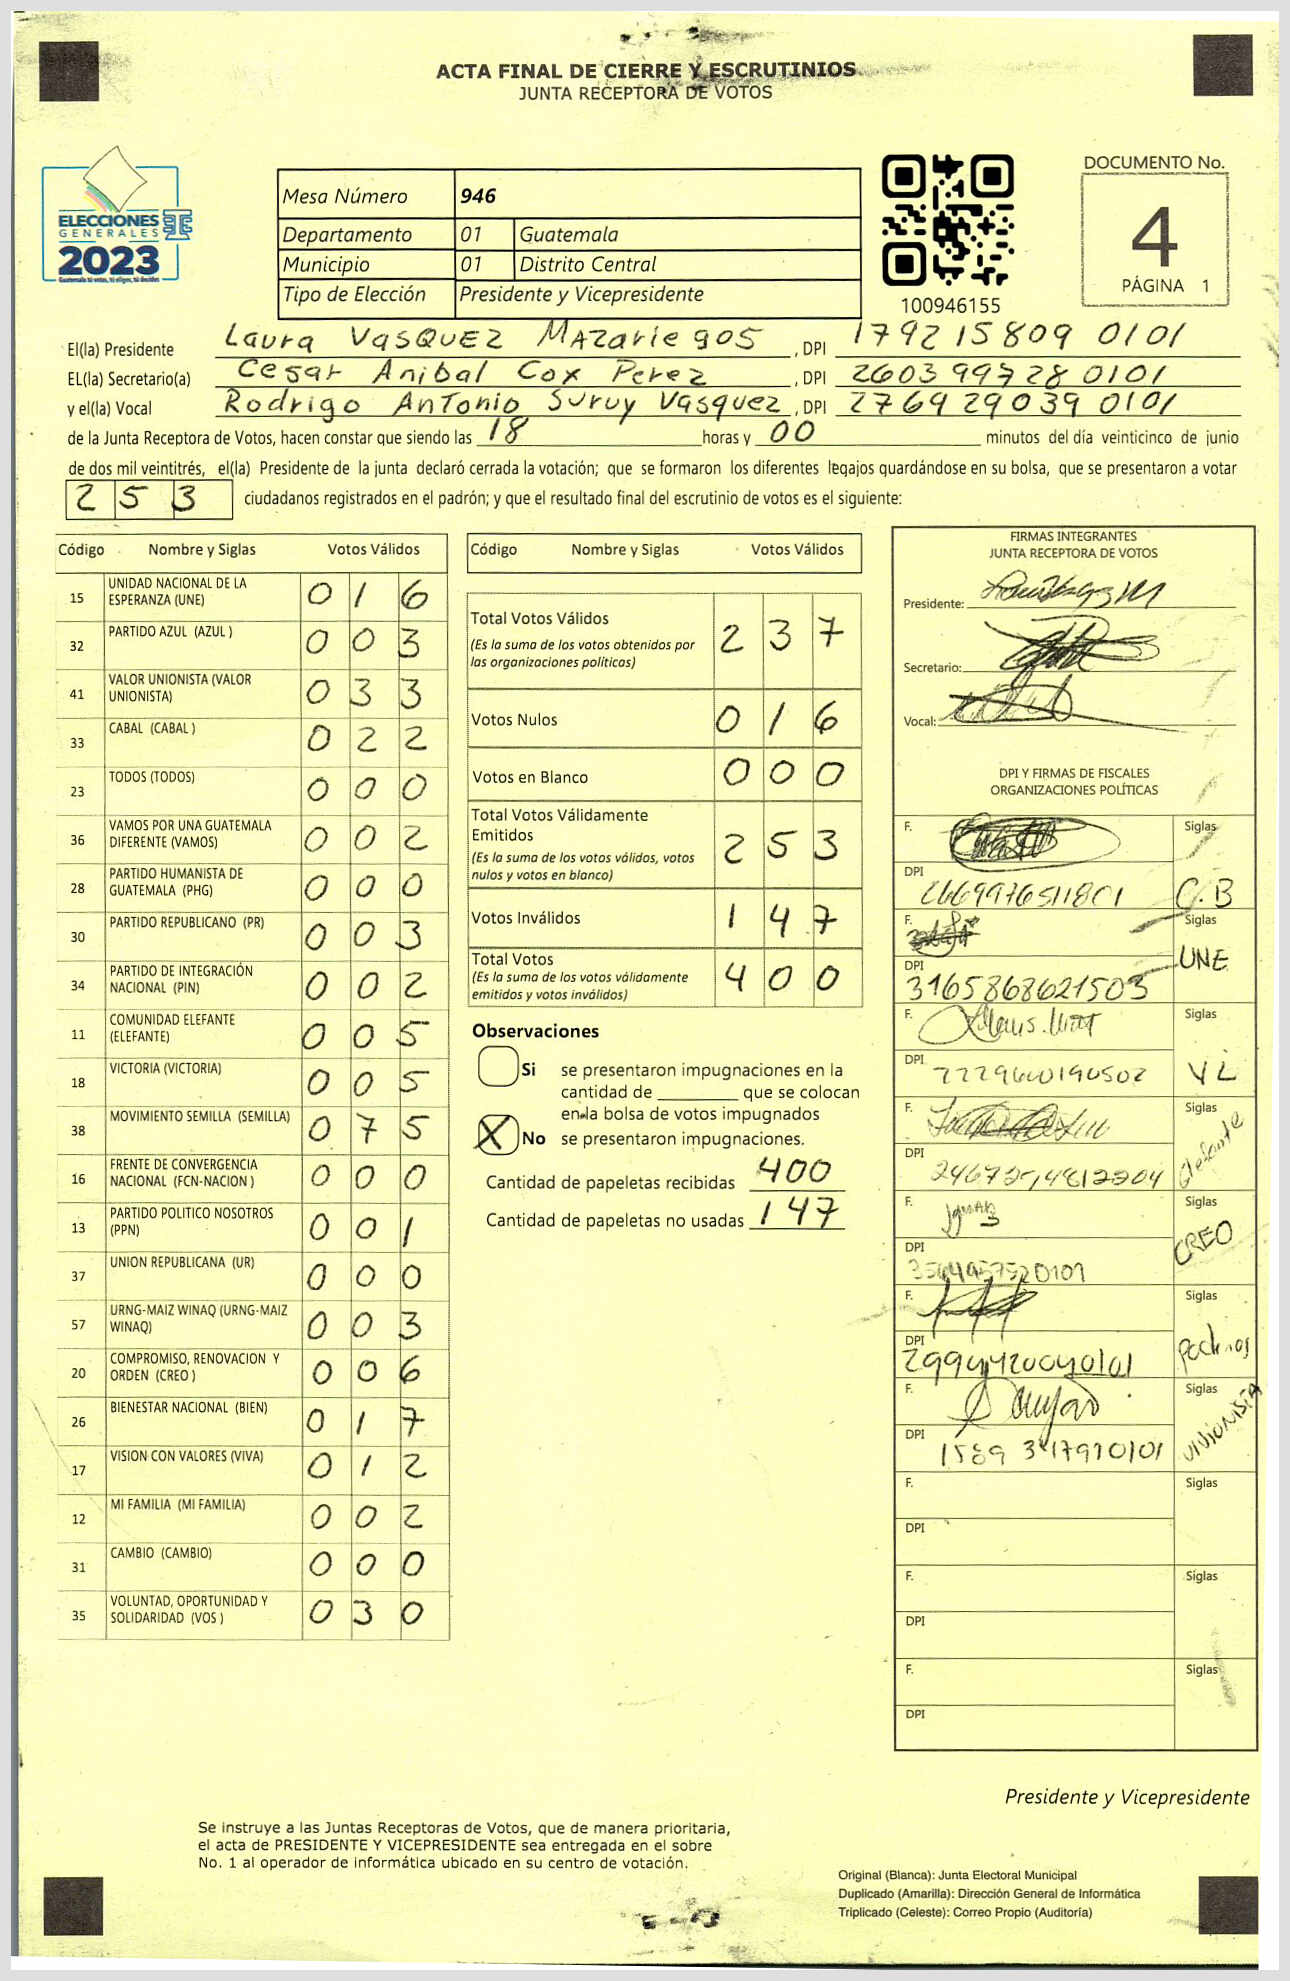 ACTA FINAL DE CIERRE Y ESCRUTINIOS
JUNTA RECEPTORA DE VOTOS
ELECCIONES
GENERALES
2023
Mesa Número 946
Departamento 01 Guatemala
Municipio 01 Distrito Central
Tipo de Elección Presidente y Vicepresidente
100946155
DOCUMENTO No.
4
PÁGINA 1
El(la) Presidente Laura VasQUEZ MAZarie gos , DPI 1792 15809 0101
EL(la) Secretario(a) Cesar Anibal Cox Perez , DPI 2603 99728 0101
y el(la) Vocal Rodrigo AnTonio Suruy Vasquez , DPI 2769 29039 0101
de la Junta Receptora de Votos, hacen constar que siendo las 18 horas y 00 minutos del día veinticinco de junio
de dos mil veintitrés, el(la) Presidente de la junta declaró cerrada la votación; que se formaron los diferentes legajos guardándose en su bolsa, que se presentaron a votar
253 ciudadanos registrados en el padrón; y que el resultado final del escrutinio de votos es el siguiente:
Código Nombre y Siglas Votos Válidos
15 UNIDAD NACIONAL DE LA ESPERANZA (UNE) 0 1 6
32 PARTIDO AZUL (AZUL ) 0 0 3
41 VALOR UNIONISTA (VALOR UNIONISTA) 0 3 3
33 CABAL (CABAL ) 0 2 2
23 TODOS (TODOS) 0 0 0
36 VAMOS POR UNA GUATEMALA DIFERENTE (VAMOS) 0 0 2
28 PARTIDO HUMANISTA DE GUATEMALA (PHG) 0 0 0
30 PARTIDO REPUBLICANO (PR) 0 0 3
34 PARTIDO DE INTEGRACIÓN NACIONAL (PIN) 0 0 2
11 COMUNIDAD ELEFANTE (ELEFANTE) 0 0 5
18 VICTORIA (VICTORIA) 0 0 5
38 MOVIMIENTO SEMILLA (SEMILLA) 0 7 5
16 FRENTE DE CONVERGENCIA NACIONAL (FCN-NACION ) 0 0 0
13 PARTIDO POLITICO NOSOTROS (PPN) 0 0 1
37 UNION REPUBLICANA (UR) 0 0 0
57 URNG-MAIZ WINAQ (URNG-MAIZ WINAQ) 0 0 3
20 COMPROMISO, RENOVACION Y ORDEN (CREO ) 0 0 6
26 BIENESTAR NACIONAL (BIEN) 0 1 7
17 VISION CON VALORES (VIVA) 0 1 2
12 MI FAMILIA (MI FAMILIA) 0 0 2
31 CAMBIO (CAMBIO) 0 0 0
35 VOLUNTAD, OPORTUNIDAD Y SOLIDARIDAD (VOS ) 0 3 0
Código Nombre y Siglas Votos Válidos
Total Votos Válidos 2 3 7
(Es la suma de los votos obtenidos por
las organizaciones políticas)
Votos Nulos 0 1 6
Votos en Blanco 0 0 0
Total Votos Válidamente
Emitidos 2 5 3
(Es la suma de los votos válidos, votos
nulos y votos en blanco)
Votos Inválidos 1 4 7
Total Votos 4 0 0
(Es la suma de los votos válidamente
emitidos y votos inválidos)
Observaciones
Si se presentaron impugnaciones en la
cantidad de ________ que se colocan
en la bolsa de votos impugnados
X No se presentaron impugnaciones.
Cantidad de papeletas recibidas 400
Cantidad de papeletas no usadas 147
FIRMAS INTEGRANTES
JUNTA RECEPTORA DE VOTOS
Presidente:
Secretario:
Vocal:
DPI Y FIRMAS DE FISCALES
ORGANIZACIONES POLÍTICAS
F. Siglas
DPI 2669976511801 C.B
F. Siglas
DPI 3165868621503 UNE
F. Siglas
DPI VL
F. Siglas
DPI elefante
F. Siglas
DPI CREO
F. Siglas
DPI
F. Siglas
DPI UNIONISTA
F. Siglas
DPI
F. Siglas
DPI
F. Siglas
DPI
Presidente y Vicepresidente
Se instruye a las Juntas Receptoras de Votos, que de manera prioritaria,
el acta de PRESIDENTE Y VICEPRESIDENTE sea entregada en el sobre
No. 1 al operador de informática ubicado en su centro de votación.
Original (Blanca): Junta Electoral Municipal
Duplicado (Amarilla): Dirección General de Informática
Triplicado (Celeste): Correo Propio (Auditoría)